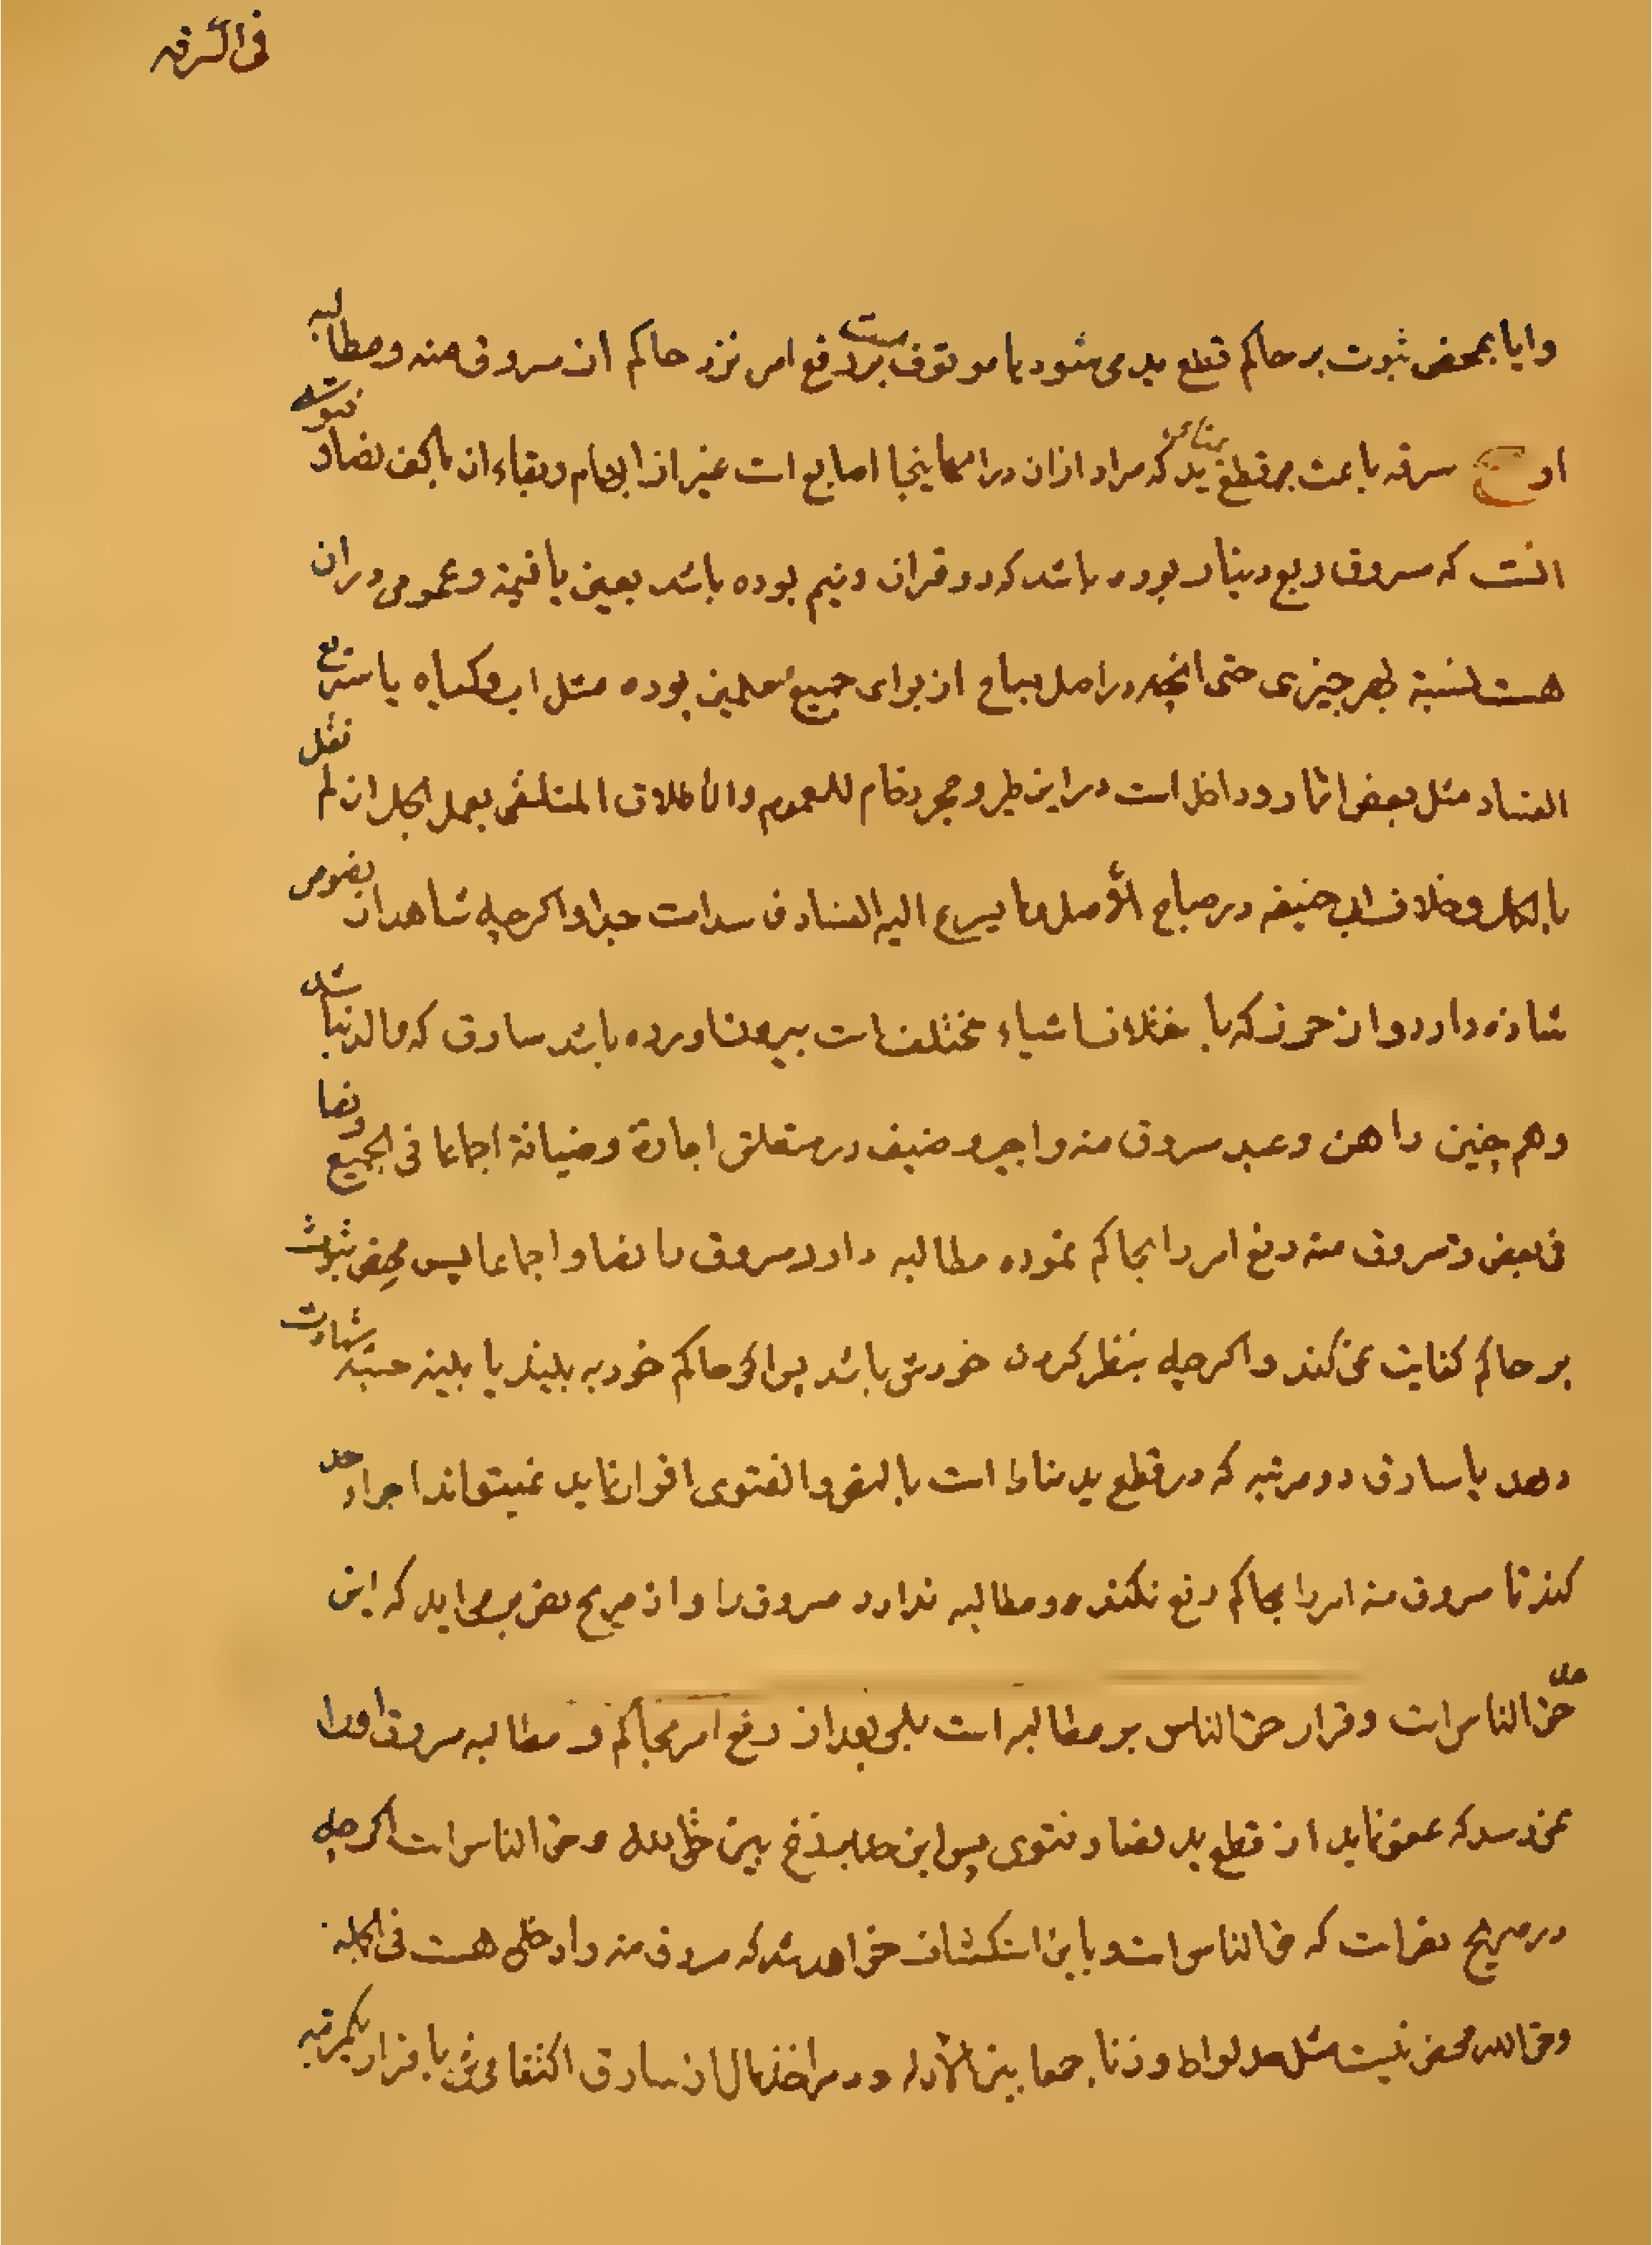 فی السرقه
وایا بمحض ثبوت بر حاکم قطع ید می شود یا موقوف است بر رفع امر نزد حاکم از مسروق منه و مطالبه
او سرقه باعث بر قطع ید که مراد از ان در امثال اینجا اصابع است غیر از ابهام و بقاء ان با کف نصا و فتوی
انست که مسروق ربع دینار بوده باشد که دو قران و نیم بوده باشد بعین یا قیمة و عمومی در ان
هست نسبة بهر چیزی حتی انچه در اصل مباح از برای جمیع مسلمین بوده مثل اب و کیاه یا سریع
الفساد مثل بعض اثمار و داخل است در این طیر و حجر رخام للعموم و الاطلاق المتلقی بعمل الکل ان لم نقل
بالکل و خلاف ابی حنیفه در مباح الأصل و ما یسرع الیه الفساد فاسد است جدا و اکر چه شاهد از نصوص
شاذه دارد و از حرز که با اختلاف اشیاء مختلف است بیرون اورده باشد سارق که والد نباشد
وهم چنین راهن و عبد مسروق منه و اجیر و ضیف در متعلق اجارة و ضیافة اجماعا فی الجمیع و نصا
فی بعض و مسروق منه رفع امر را بحاکم نموده مطالبه دارد مسروق را نصا و اجماعا پس محض ثبوت
بر حاکم کفایت نمی کند و اکر چه بنظر کردن خودش باشد پس اکر حاکم خود به بیند یا بینه حسبة شهادت
دهد یا سارق دو مرتبه که در قطع ید مناط است بالنص و الفتوی اقرار نماید نمیتواند اجراء حد
کند تا مسروق منه امر را بحاکم رفع نکند و مطالبه ندارد مسروق را و از صریح نص بر می اید که این
حد حق الناس است و قرار حق الناس بر مطالبه است بلی بعد از رفع امر بحاکم و مطالبه مسروق او را
نمی رسد که عفو نماید از قطع ید نصا و فتوی پس این حد برزخ بین حق الله و حق الناس است اکر چه
در صریح نص است که حق الناس است و باین استکشاف خواهد شد که مسروق منه را دخلی هست فی الجمله
و حق الله محض نیست مثل حد لواط و زنا جمعا بین الأدله و در اخذ مال از سارق اکتفا می شود با قرار یکمرتبه